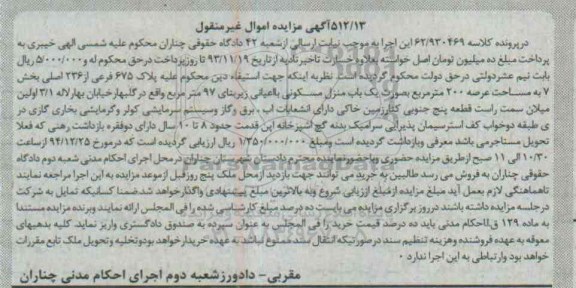 ۵۱۲/۱۳آگهی مزایده اموال غیرمنقول
درپرونده کلاسه ۶۲/۹۳۰۴۶۹ این اجرا به موجب نیابت ارسالی ازشعبه ۴۲ دادگاه حقوقی چناران محکوم علیه شمسی الهی خیبری به
پرداخت مبلغ ده میلیون تومان اصل خواسته بعلاوه خسارت تاخیرتادیه ازتاریخ ۹۳/۱۱/۱۹ تا روزپرداخت درحق محکوم له و ۵/۰۰۰/۰۰۰ ریال
بابت نیم عشردولتی درحق دولت محکوم گردیده نظر باینکه جهت استیفاء دین محکوم علیه پلاک ۶۷۵ فرعی از۲۳۶ اصلی بخش
۷ به مساحت عرصه ۲۰۰ مترمربع بصورت یک باب منزل مسکونی بااعیانی زیربنای ۹۷ متر مربع واقع درگلبهارخیابان بهارلاله ۳/۱ اولین
میلان سمت راست قطعه پنج جنوبی کنارزمین خاکی دارای انشعابات آب . برق وگاز وسیستم سرمایشی کولر وگرمایشی بخاری گازی در
ی طبقه دوخواب کف استرسیمان پذیرایی سرامیک بدنه گچ آشپزخانه اپن قدمت حدود ۸ تا ۱۰ سال دارای دوفقره بازداشت رهنی که فعلا
تحویل مستاجرمی باشد معرفی وبازداشت گردیده است ومبلغ ۱/۳۵۰/۰۰۰/۰۰۰ ریال ارزیابی گردیده است که درمورخ ۹۴/۱۲/۲۵ ازساعت
۱۰/۳۰ الی ۱۱ صبح ازطریق مزایده حضوری وباحضورنماینده محترم دادستان شهرستان چناران درمحل اجرای احکام مدنی شعبه دوم دادگاه
حقوقی چناران به فروش می رسد طالبین به خرید می توانند جهت بازدید ازمحل ملک پنج روزقبل ازموعد مزایده به این اجرا مراجعه نمایند
تاهماهنگی لازم بعمل آید مبلغ مزایده ازمبلغ ارزیابی شروع وبه بالاترین مبلغ پیشنهادی واگذارخواهد شد.ضمنا کسانیکه تمایل به شرکت
درجلسه مزایده داشته باشند درروز برگزاری مزایده می بایست ده درصد مبلغ کارشناسی شده را فی المجلس ارائه نمایند وبرنده مزایده مستندا
به ماده ۱۲۹ ق.ااحکام مدنی باید ده درصد قیمت خرید را فی المجلس به عنوان سپرده به صندوق دادگستری واریز نماید. کلیه بدهیهای
معوقه به عهده فروشنده وهزینه تنظیم سند درصورتیکه انتقال سند ممنوع نباشد به عهده خریدارخواهد بودوتخلیه وتحویل ملک تابع مقررات
خواهد بود وارتباطی به این اجرا ندارد .
مقربی- دادورزشعبه دوم اجرای احکام مدنی چناران